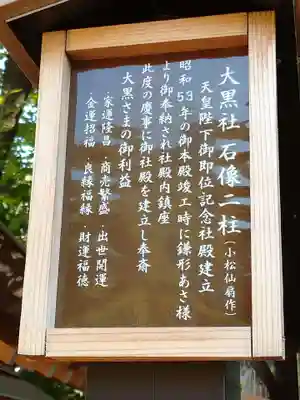 大黒社 石像二柱（小松仙扇作）
天皇陛下御即位記念社殿建立
昭和53年の御本殿竣工時に鎌形あさ様
より御奉納され社殿内鎮座
此度の慶事に御社殿を建立し奉斎
大黒さまの御利益
・家運隆昌・商売繁盛・出世開運
・金運招福・良縁福縁・財運福徳